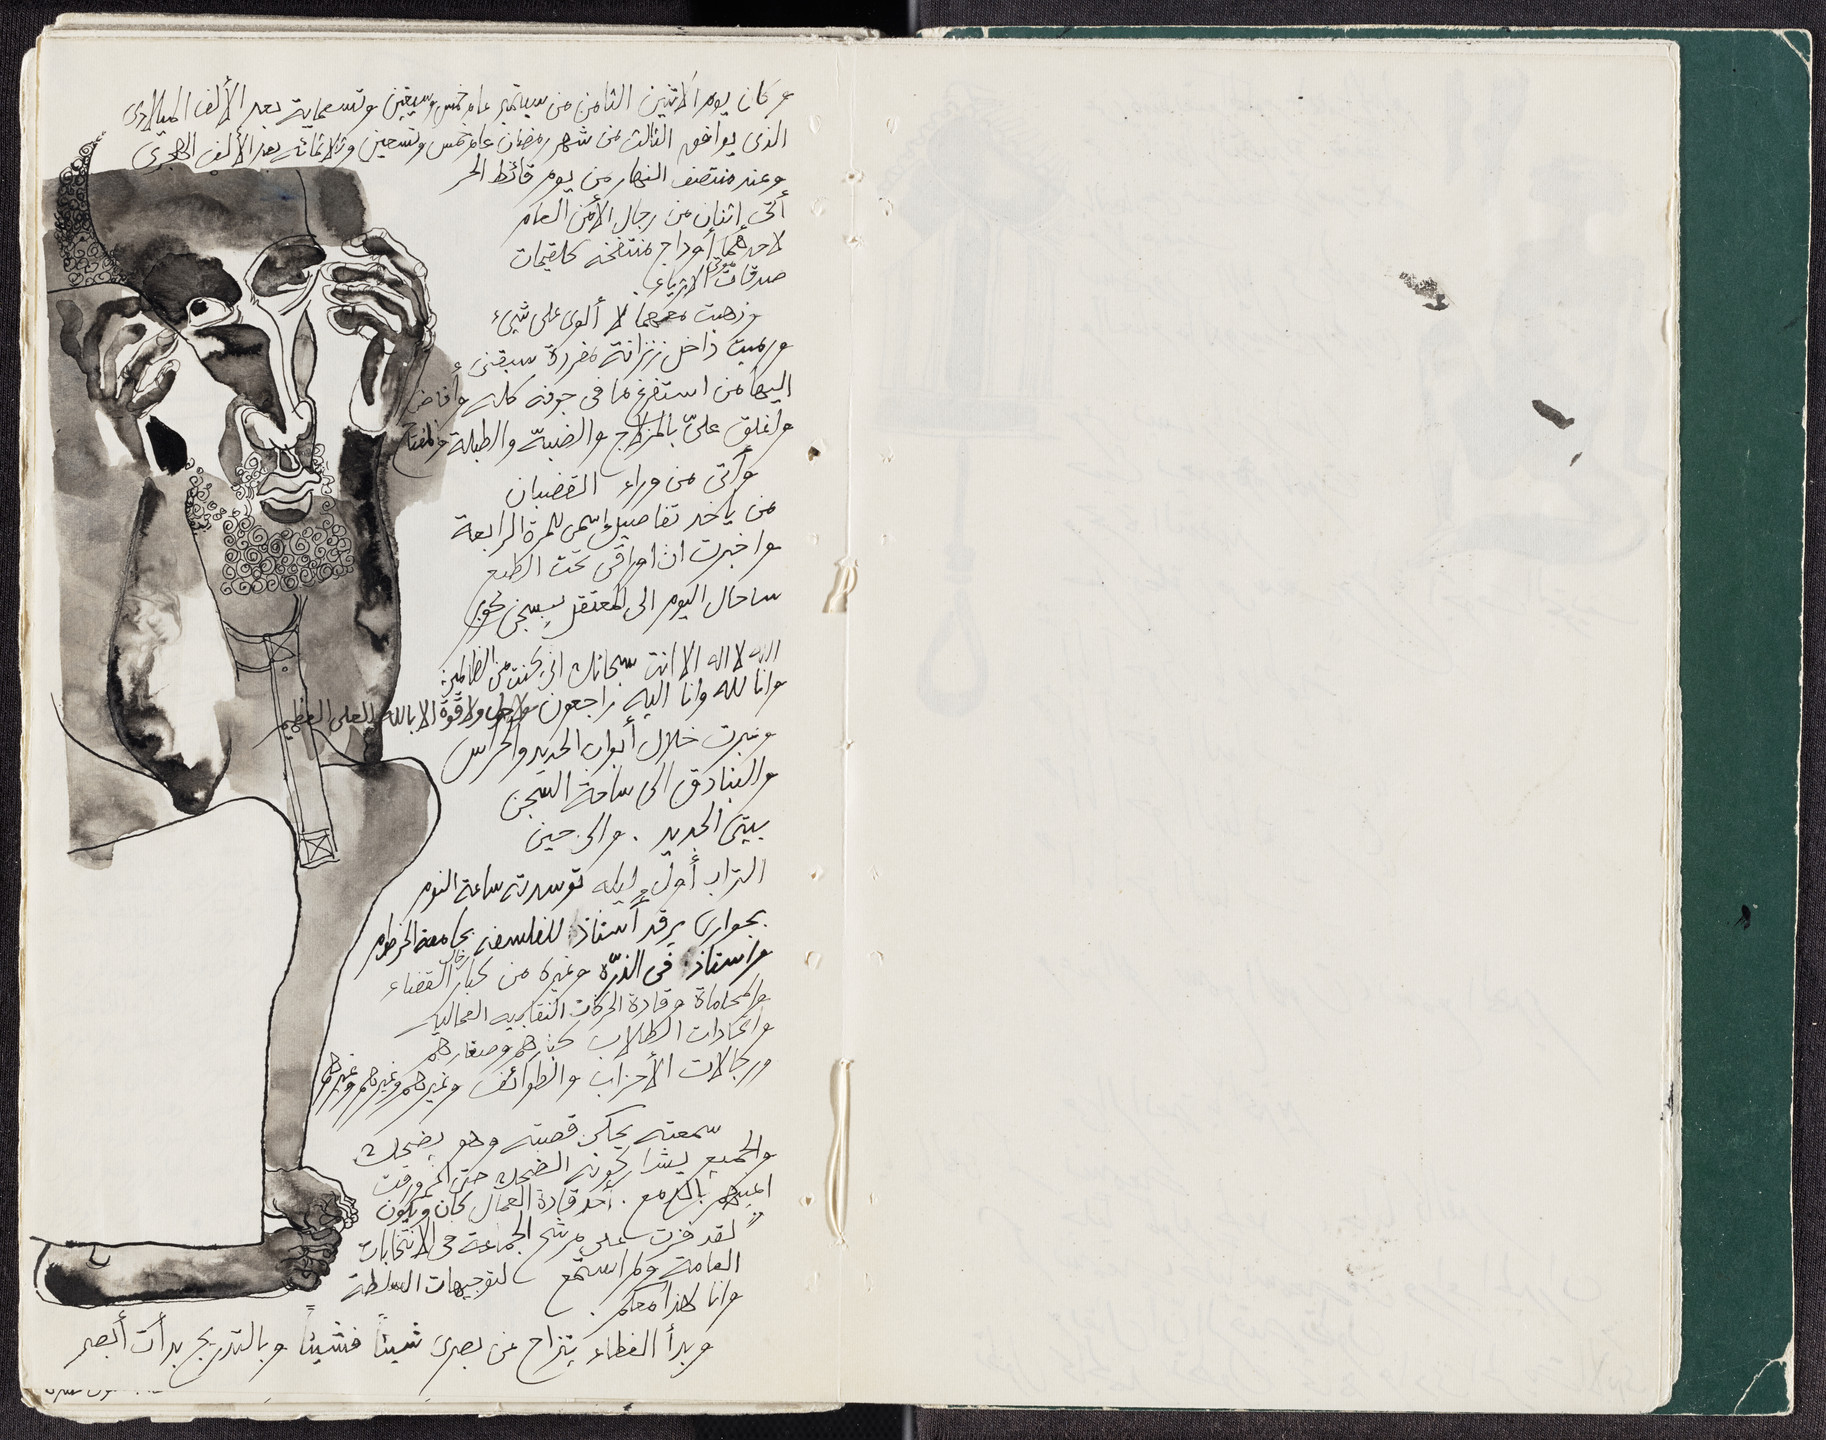 وكان يوم الاثنين الثامن من سبتمبر عام خمس وسبعين وتسعماية بعد الألف الميلادى
الذى يوافق الثالث من شهر رمضان عام خمس وتسعين وثلاثمائة بعد الألف الهجرى
وعند منتصف النهار من يوم قائظ الحر
أتى إثنان من رجال الأمن العام
لاحدهما أوداج منتفخه كلقيمات
صدقات موتى الاثرياء.
وذهبت معهما لا ألوى على شيئ
ورميت داخل زنزانة مفردة سبقنى
اليها من استفرغ ما فى جوفه كله وأفاض
وأغلق علىّ بالمزلاج والضبة والطبلة والمفتاح
وأتى من وراء القضبان
من ياخد تفاصيل إسمى للمرة الرابعة
واخبرت ان اوراقى تحت الطبع
ساحال اليوم الى المعتقل بسجن كوبر
الله لا اله الا انت سبحانك انى كنت من الظالمين
وانا لله وانا اليه راجعون ولا حول ولا قوّة الا بالله العلى العظيم
وعبرت خلال أبواب الحديد والحراس
والبنادق الى ساحة السجن
بيتى الجديد . والى حين
التراب أول ليله توسدته ساعة النوم
بجوارى يرقد أستاذ للفلسفه بجامعة الخرطوم
واستاذ فى الذرّه وغيره من كبار رجال القضاء
والمحاماة وقادة الحركات النقابيه العماليه
واتحادات الطلاب كبارهم وصغارهم
ورجالات الأحزاب والطوائف وغيرهم وغيرهم وغيرهم
سمعته يحكى قصته وهو يضحك
والجميع يشاركونه الضحك حتى اغرورقت
اعينهم بالدمع . أحد قادة العمال كان ويكون
لقد فزت على مرشح الجماعة فى الانتخابات
العامة ولم استمع لتوجيهات السلطة
وانا لهذا معكم .
وبدأ الغطاء ينزاح عن بصرى شيئاً فشيئاً وبالتدريج بدأت أبصر